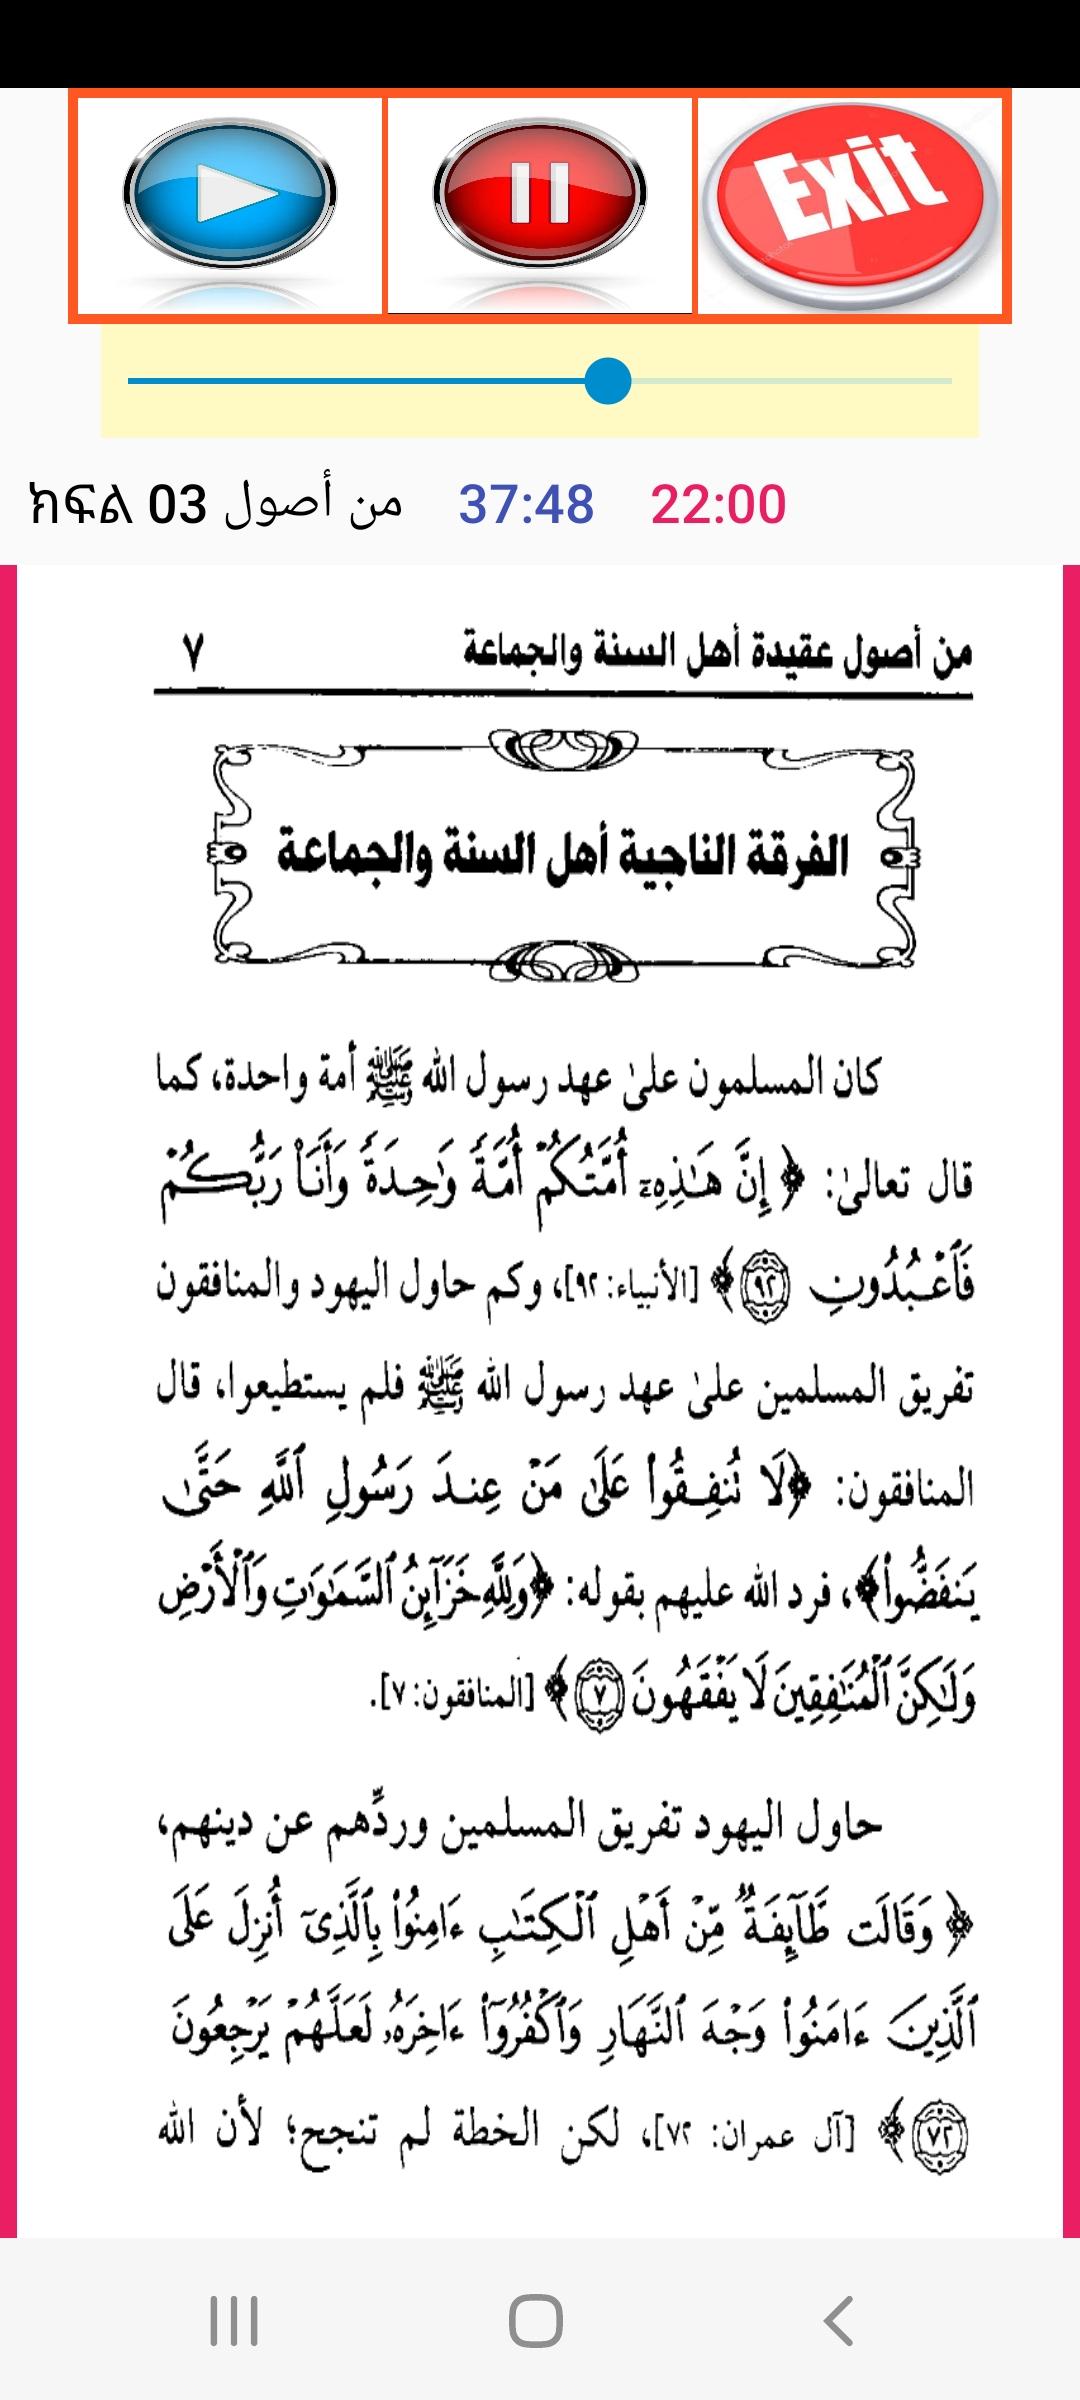 Exit
ክፍል 03 من أصول 37:48 22:00
من أصول عقيدة أهل السنة والجماعة ٧
الفرقة الناجية أهل السنة والجماعة
كان المسلمون علىٰ عهد رسول الله ﷺ أمة واحدة، كما
قال تعالىٰ: ﴿إِنَّ هَـٰذِهِۦٓ أُمَّتُكُمْ أُمَّةً وَٰحِدَةً وَأَنَا۠ رَبُّكُمْ
فَٱعْبُدُونِ ٩٢﴾ [الأنبياء: ٩٢]، وكم حاول اليهود والمنافقون
تفريق المسلمين علىٰ عهد رسول الله ﷺ فلم يستطيعوا، قال
المنافقون: ﴿لَا تُنفِقُوا۟ عَلَىٰ مَنْ عِندَ رَسُولِ ٱللَّهِ حَتَّىٰ
يَنفَضُّوا۟﴾، فرد الله عليهم بقوله: ﴿وَلِلَّهِ خَزَآئِنُ ٱلسَّمَـٰوَٰتِ وَٱلْأَرْضِ
وَلَـٰكِنَّ ٱلْمُنَـٰفِقِينَ لَا يَفْقَهُونَ ٧﴾ [المنافقون: ٧].
حاول اليهود تفريق المسلمين وردِّهم عن دينهم،
﴿وَقَالَت طَّآئِفَةٌ مِّنْ أَهْلِ ٱلْكِتَـٰبِ ءَامِنُوا۟ بِٱلَّذِىٓ أُنزِلَ عَلَى
ٱلَّذِينَ ءَامَنُوا۟ وَجْهَ ٱلنَّهَارِ وَٱكْفُرُوٓا۟ ءَاخِرَهُۥ لَعَلَّهُمْ يَرْجِعُونَ
٧٢﴾ [آل عمران: ٧٢]، لكن الخطة لم تنجح؛ لأن الله